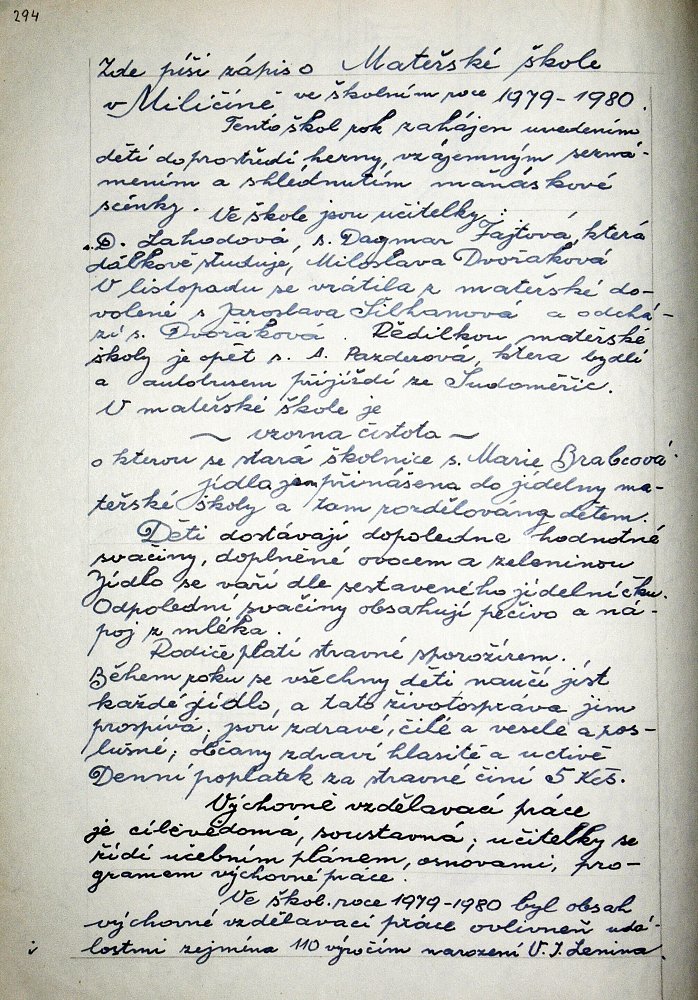 294
Zde píši zápis o Mateřské škole
v Miličíně ve školním roce 1979-1980.
Tento škol rok zahájen uvedením
dětí do prostředí herny, vzájemným sezná-
mením a shlédnutím maňáskové
scénky. Ve škole jsou učitelky:
s. D. Lahodová, s. Dagmar Fajtová, která
dálkově studuje, Miloslava Dvořáková
V listopadu se vrátila z mateřské do-
volené s Jaroslava Šilhanová a odchá-
zí s. Dvořáková. Ředilkou mateřské
školy je opět s. A. Pazderová, která bydlí
a autobusem přijíždí ze Sudoměřic.
V mateřské škole je
~ vzorna čistota ~
o kterou se stará školnice s. Marie Brabcová.
jídla jsou přinášena do jídelny ma-
teřské školy a tam rozdělována dětem.
Děti dostávají dopoledne hodnotné
svačiny, doplněné ovocem a zeleninou
Jídlo se vaří dle sestaveného jídelníčku.
Odpolední svačiny obsahují pečivo a ná-
poj z mléka.
Rodiče platí stravné sporožirem.
Během roku se všechny deti naučí jíst
každé jídlo, a tato životospráva jim
prospívá; jsou zdravé, čilé a veselé a pos-
lušné; občany zdraví hlasitě a uctivě
Denní poplatek za stravné činí 5 Kčs.
Výchovně vzdělavací práce
je cílevědomá, soustavná; učitelky se
řídí učebním plánem, osnovami, pro-
gramem výchovné práce.
Ve škol. roce 1979-1980 byl obsah
výchovně vzdělavací práce ovlivněn udá-
lostmi zejména 110 výročím narození V. I. Lenina